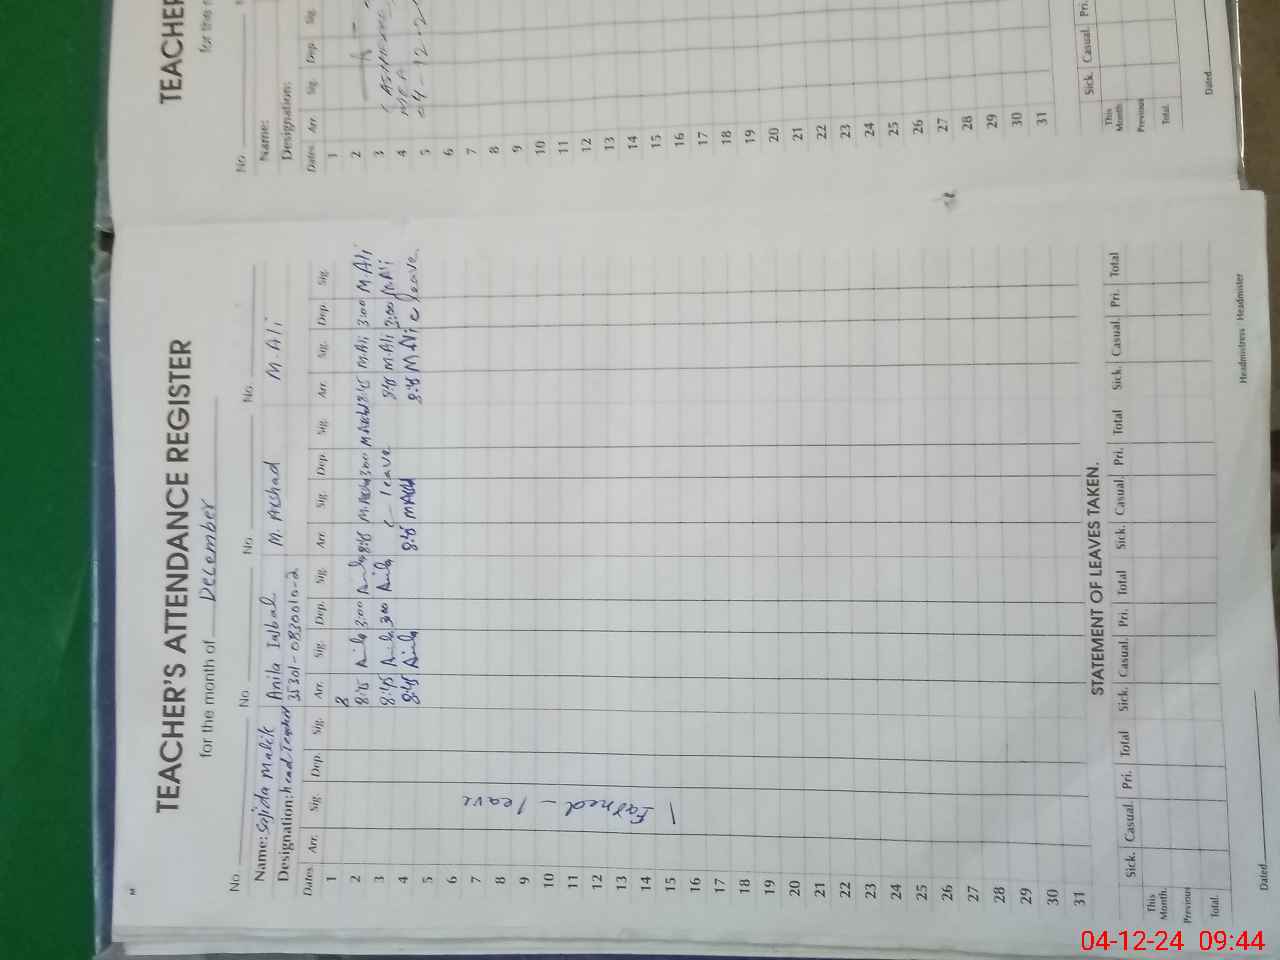 TEACHER'S ATTENDANCE REGISTER
for the month of December
No. No. No. No.
Name: Sajida Malik Anila Iqbal M. Arshad M. Ali
Designation: head Teacher 35301-0830010-2
Dates Arr. Sig. Dep. Sig. Arr. Sig. Dep. Sig. Arr. Sig. Dep. Sig. Arr. Sig. Dep. Sig.
1 8
2 8:45 Anila 3:00 Anila 8:45 3:00 8:45 M.Ali 3:00 M.Ali
3 8:45 Anila 3:00 Anila c leave 8:45 M.Ali 3:00 M.Ali
4 8:45 Anila 8:45 8:45 M.Ali c leave
5
6
7
8
9
10
11
12
13
14
15
16
17
18
19
20
21
22
23
24
25
26
27
28
29
30
31
Earned - leave
STATEMENT OF LEAVES TAKEN.
Sick. Casual. Pri. Total Sick. Casual. Pri. Total Sick. Casual. Pri. Total Sick. Casual. Pri. Total
This Month.
Previous
Total.
Dated Headmistress / Headmister
TEACHER
for this
No
Name:
Designation:
Dates Arr. Sig. Dep. Sig.
1
2
3
4
5
6
7
8
9
10
11
12
13
14
15
16
17
18
19
20
21
22
23
24
25
26
27
28
29
30
31
Sick. Casual. Pri.
This Month
Previous
Total.
Dated
04-12-24 09:44